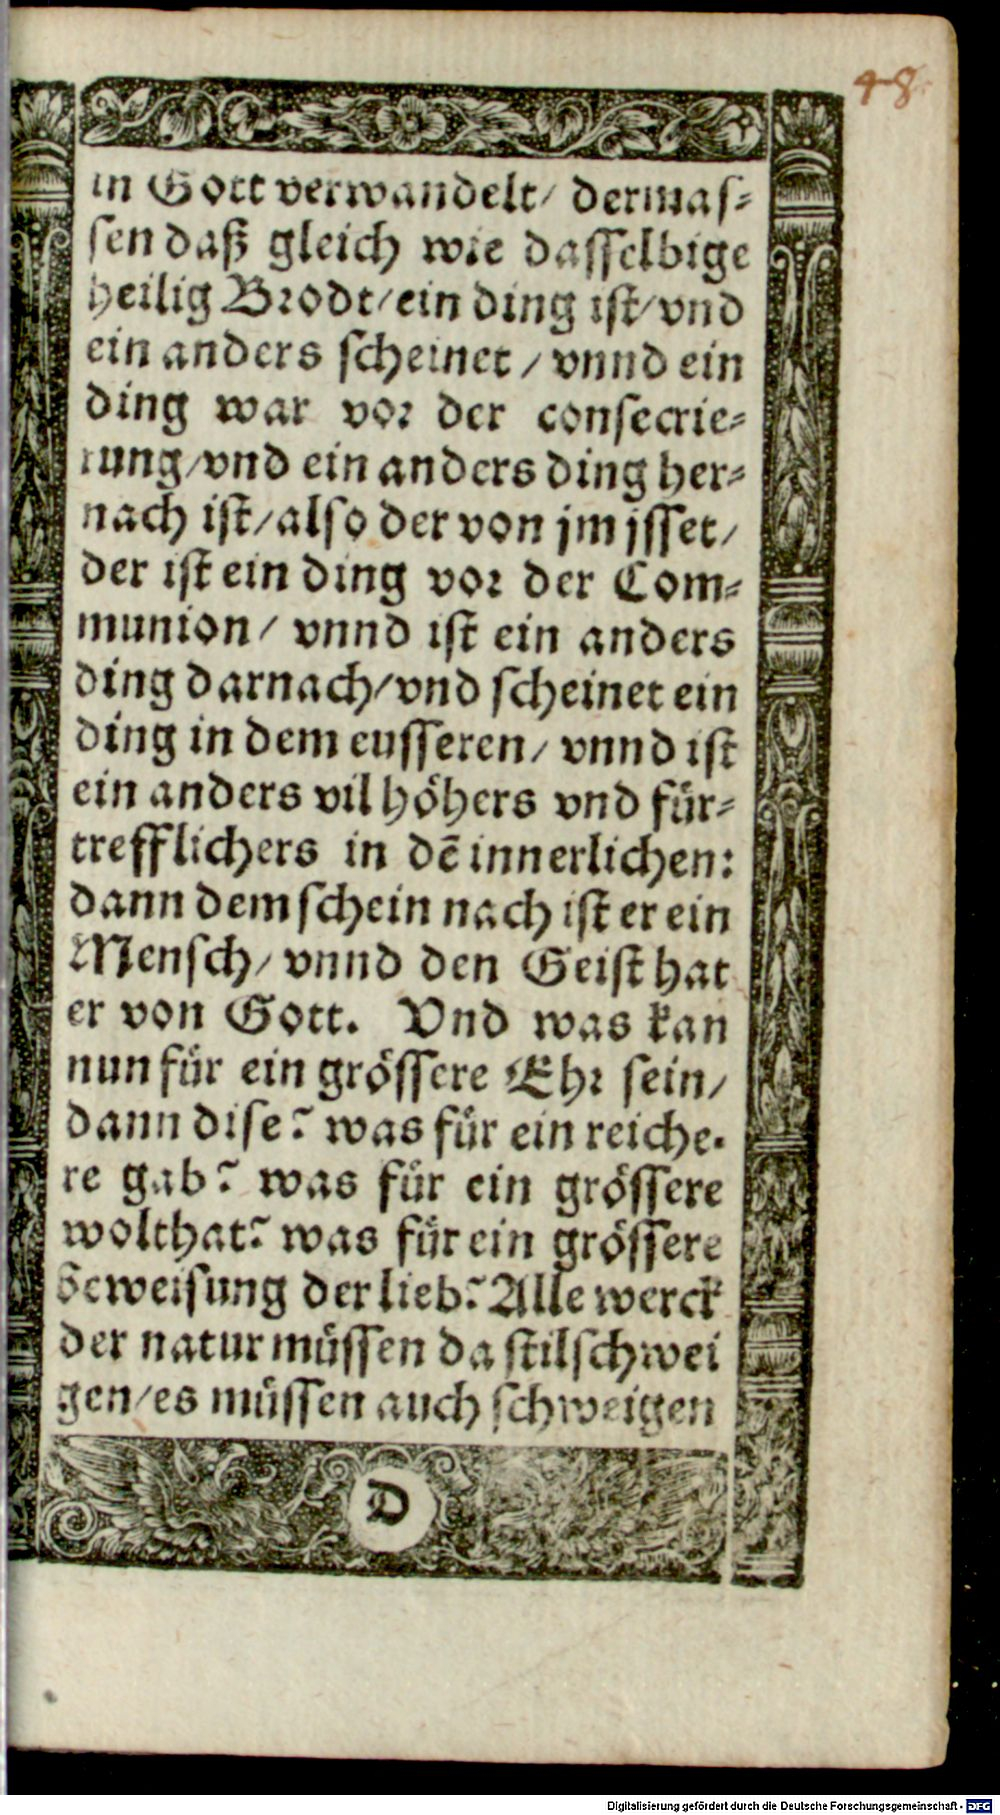 48
in Gott verwandelt/ dermas⸗
sen daß gleich wie dasselbige
heilig Brodt/ein ding ist/vnd
ein anders scheinet/vnnd ein
ding war vor der consecrie⸗
rung/vnd ein anders ding her⸗
nach ist/also der von jm jsset/
der ist ein ding vor der Com⸗
munion/ vnnd ist ein anders
ding darnach/vnd scheinet ein
ding in dem eusseren/ vnnd ist
ein anders vil höhers vnd für⸗
trefflichers in dē innerlichen:
dann dem schein nach ist er ein
Mensch/ vnnd den Geist hat
er von Gott. Vnd was kan
nun für ein grössere Ehr sein/
dann dise? was für ein reiche⸗
re gab? was für ein grössere
wolthat? was für ein grössere
beweisung der lieb? Alle werck
der natur müssen da stilschwei
gen/es müssen auch schweigen
D
Digitalisierung gefördert durch die Deutsche Forschungsgemeinschaft - DFG